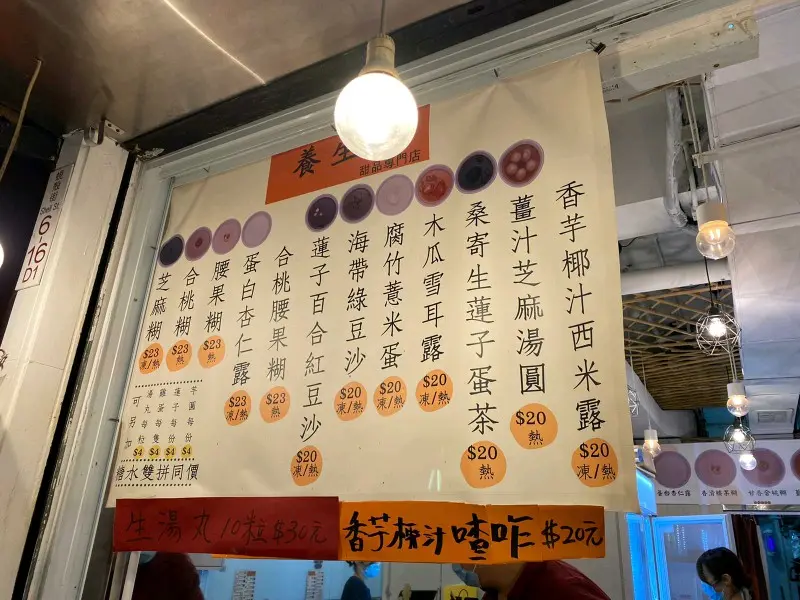 養生
甜品專門店
香芋椰汁西米露
$20
凍/熱
薑汁芝麻湯圓
$20
熱
桑寄生蓮子蛋茶
$20
熱
木瓜雪耳露
$20
凍/熱
腐竹薏米蛋
$20
凍/熱
海帶綠豆沙
$20
凍/熱
蓮子百合紅豆沙
$20
凍/熱
合桃腰果糊
$23
熱
蛋白杏仁露
$23
凍/熱
腰果糊
$23
熱
合桃糊
$23
熱
芝麻糊
$23
凍/熱
可另加
湯丸每粒
$4
雞蛋每隻
$4
蓮子每份
$4
芋圓每份
$4
糖水雙拼同價
生湯丸10粒$30元
香芋椰汁喳咋$20元
Shell St.
6-16
D1